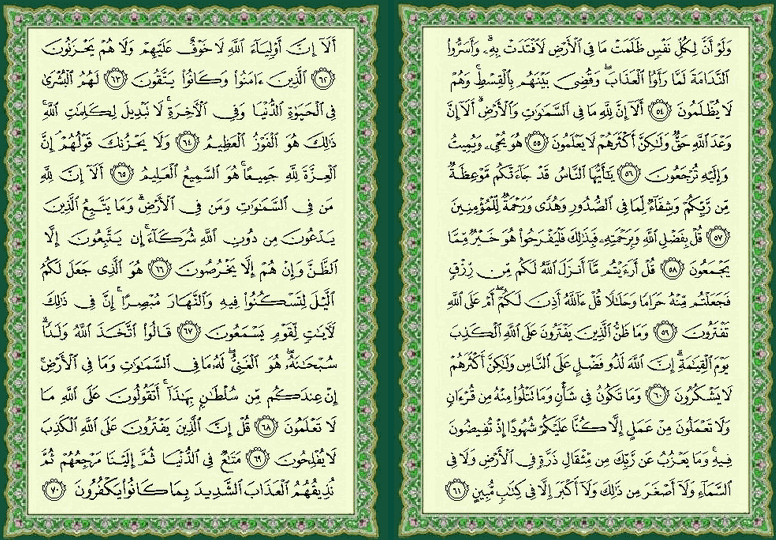 وَلَوْ أَنَّ لِكُلِّ نَفْسٍ ظَلَمَتْ مَا فِي ٱلْأَرْضِ لَٱفْتَدَتْ بِهِۦ ۗ وَأَسَرُّوا۟
ٱلنَّدَامَةَ لَمَّا رَأَوُا۟ ٱلْعَذَابَ ۖ وَقُضِيَ بَيْنَهُم بِٱلْقِسْطِ ۚ وَهُمْ
لَا يُظْلَمُونَ ٥٤ أَلَآ إِنَّ لِلَّهِ مَا فِي ٱلسَّمَٰوَٰتِ وَٱلْأَرْضِ ۗ أَلَآ إِنَّ
وَعْدَ ٱللَّهِ حَقٌّ وَلَٰكِنَّ أَكْثَرَهُمْ لَا يَعْلَمُونَ ٥٥ هُوَ يُحْيِۦ وَيُمِيتُ
وَإِلَيْهِ تُرْجَعُونَ ٥٦ يَٰٓأَيُّهَا ٱلنَّاسُ قَدْ جَآءَتْكُم مَّوْعِظَةٌ
مِّن رَّبِّكُمْ وَشِفَآءٌ لِّمَا فِي ٱلصُّدُورِ وَهُدًى وَرَحْمَةٌ لِّلْمُؤْمِنِينَ
٥٧ قُلْ بِفَضْلِ ٱللَّهِ وَبِرَحْمَتِهِۦ فَبِذَٰلِكَ فَلْيَفْرَحُوا۟ هُوَ خَيْرٌ مِّمَّا
يَجْمَعُونَ ٥٨ قُلْ أَرَءَيْتُم مَّآ أَنزَلَ ٱللَّهُ لَكُم مِّن رِّزْقٍ
فَجَعَلْتُم مِّنْهُ حَرَامًا وَحَلَٰلًا قُلْ ءَآللَّهُ أَذِنَ لَكُمْ ۖ أَمْ عَلَى ٱللَّهِ
تَفْتَرُونَ ٥٩ وَمَا ظَنُّ ٱلَّذِينَ يَفْتَرُونَ عَلَى ٱللَّهِ ٱلْكَذِبَ
يَوْمَ ٱلْقِيَٰمَةِ ۗ إِنَّ ٱللَّهَ لَذُو فَضْلٍ عَلَى ٱلنَّاسِ وَلَٰكِنَّ أَكْثَرَهُمْ
لَا يَشْكُرُونَ ٦٠ وَمَا تَكُونُ فِي شَأْنٍ وَمَا تَتْلُوا۟ مِنْهُ مِن قُرْءَانٍ
وَلَا تَعْمَلُونَ مِنْ عَمَلٍ إِلَّا كُنَّا عَلَيْكُمْ شُهُودًا إِذْ تُفِيضُونَ
فِيهِ ۚ وَمَا يَعْزُبُ عَن رَّبِّكَ مِن مِّثْقَالِ ذَرَّةٍ فِي ٱلْأَرْضِ وَلَا فِي
ٱلسَّمَآءِ وَلَآ أَصْغَرَ مِن ذَٰلِكَ وَلَآ أَكْبَرَ إِلَّا فِي كِتَٰبٍ مُّبِينٍ ٦١
أَلَآ إِنَّ أَوْلِيَآءَ ٱللَّهِ لَا خَوْفٌ عَلَيْهِمْ وَلَا هُمْ يَحْزَنُونَ
٦٢ ٱلَّذِينَ ءَامَنُوا۟ وَكَانُوا۟ يَتَّقُونَ ٦٣ لَهُمُ ٱلْبُشْرَىٰ
فِي ٱلْحَيَوٰةِ ٱلدُّنْيَا وَفِي ٱلْأَخِرَةِ ۚ لَا تَبْدِيلَ لِكَلِمَٰتِ ٱللَّهِ ۚ
ذَٰلِكَ هُوَ ٱلْفَوْزُ ٱلْعَظِيمُ ٦٤ وَلَا يَحْزُنكَ قَوْلُهُمْ ۘ إِنَّ
ٱلْعِزَّةَ لِلَّهِ جَمِيعًا ۚ هُوَ ٱلسَّمِيعُ ٱلْعَلِيمُ ٦٥ أَلَآ إِنَّ لِلَّهِ
مَن فِي ٱلسَّمَٰوَٰتِ وَمَن فِي ٱلْأَرْضِ ۗ وَمَا يَتَّبِعُ ٱلَّذِينَ
يَدْعُونَ مِن دُونِ ٱللَّهِ شُرَكَآءَ ۚ إِن يَتَّبِعُونَ إِلَّا
ٱلظَّنَّ وَإِنْ هُمْ إِلَّا يَخْرُصُونَ ٦٦ هُوَ ٱلَّذِي جَعَلَ لَكُمُ
ٱلَّيْلَ لِتَسْكُنُوا۟ فِيهِ وَٱلنَّهَارَ مُبْصِرًا ۚ إِنَّ فِي ذَٰلِكَ
لَأٓيَٰتٍ لِّقَوْمٍ يَسْمَعُونَ ٦٧ قَالُوا۟ ٱتَّخَذَ ٱللَّهُ وَلَدًا ۗ
سُبْحَٰنَهُۥ ۖ هُوَ ٱلْغَنِيُّ ۖ لَهُۥ مَا فِي ٱلسَّمَٰوَٰتِ وَمَا فِي ٱلْأَرْضِ ۚ
إِنْ عِندَكُم مِّن سُلْطَٰنٍۭ بِهَٰذَآ ۚ أَتَقُولُونَ عَلَى ٱللَّهِ مَا
لَا تَعْلَمُونَ ٦٨ قُلْ إِنَّ ٱلَّذِينَ يَفْتَرُونَ عَلَى ٱللَّهِ ٱلْكَذِبَ
لَا يُفْلِحُونَ ٦٩ مَتَٰعٌ فِي ٱلدُّنْيَا ثُمَّ إِلَيْنَا مَرْجِعُهُمْ ثُمَّ
نُذِيقُهُمُ ٱلْعَذَابَ ٱلشَّدِيدَ بِمَا كَانُوا۟ يَكْفُرُونَ ٧٠